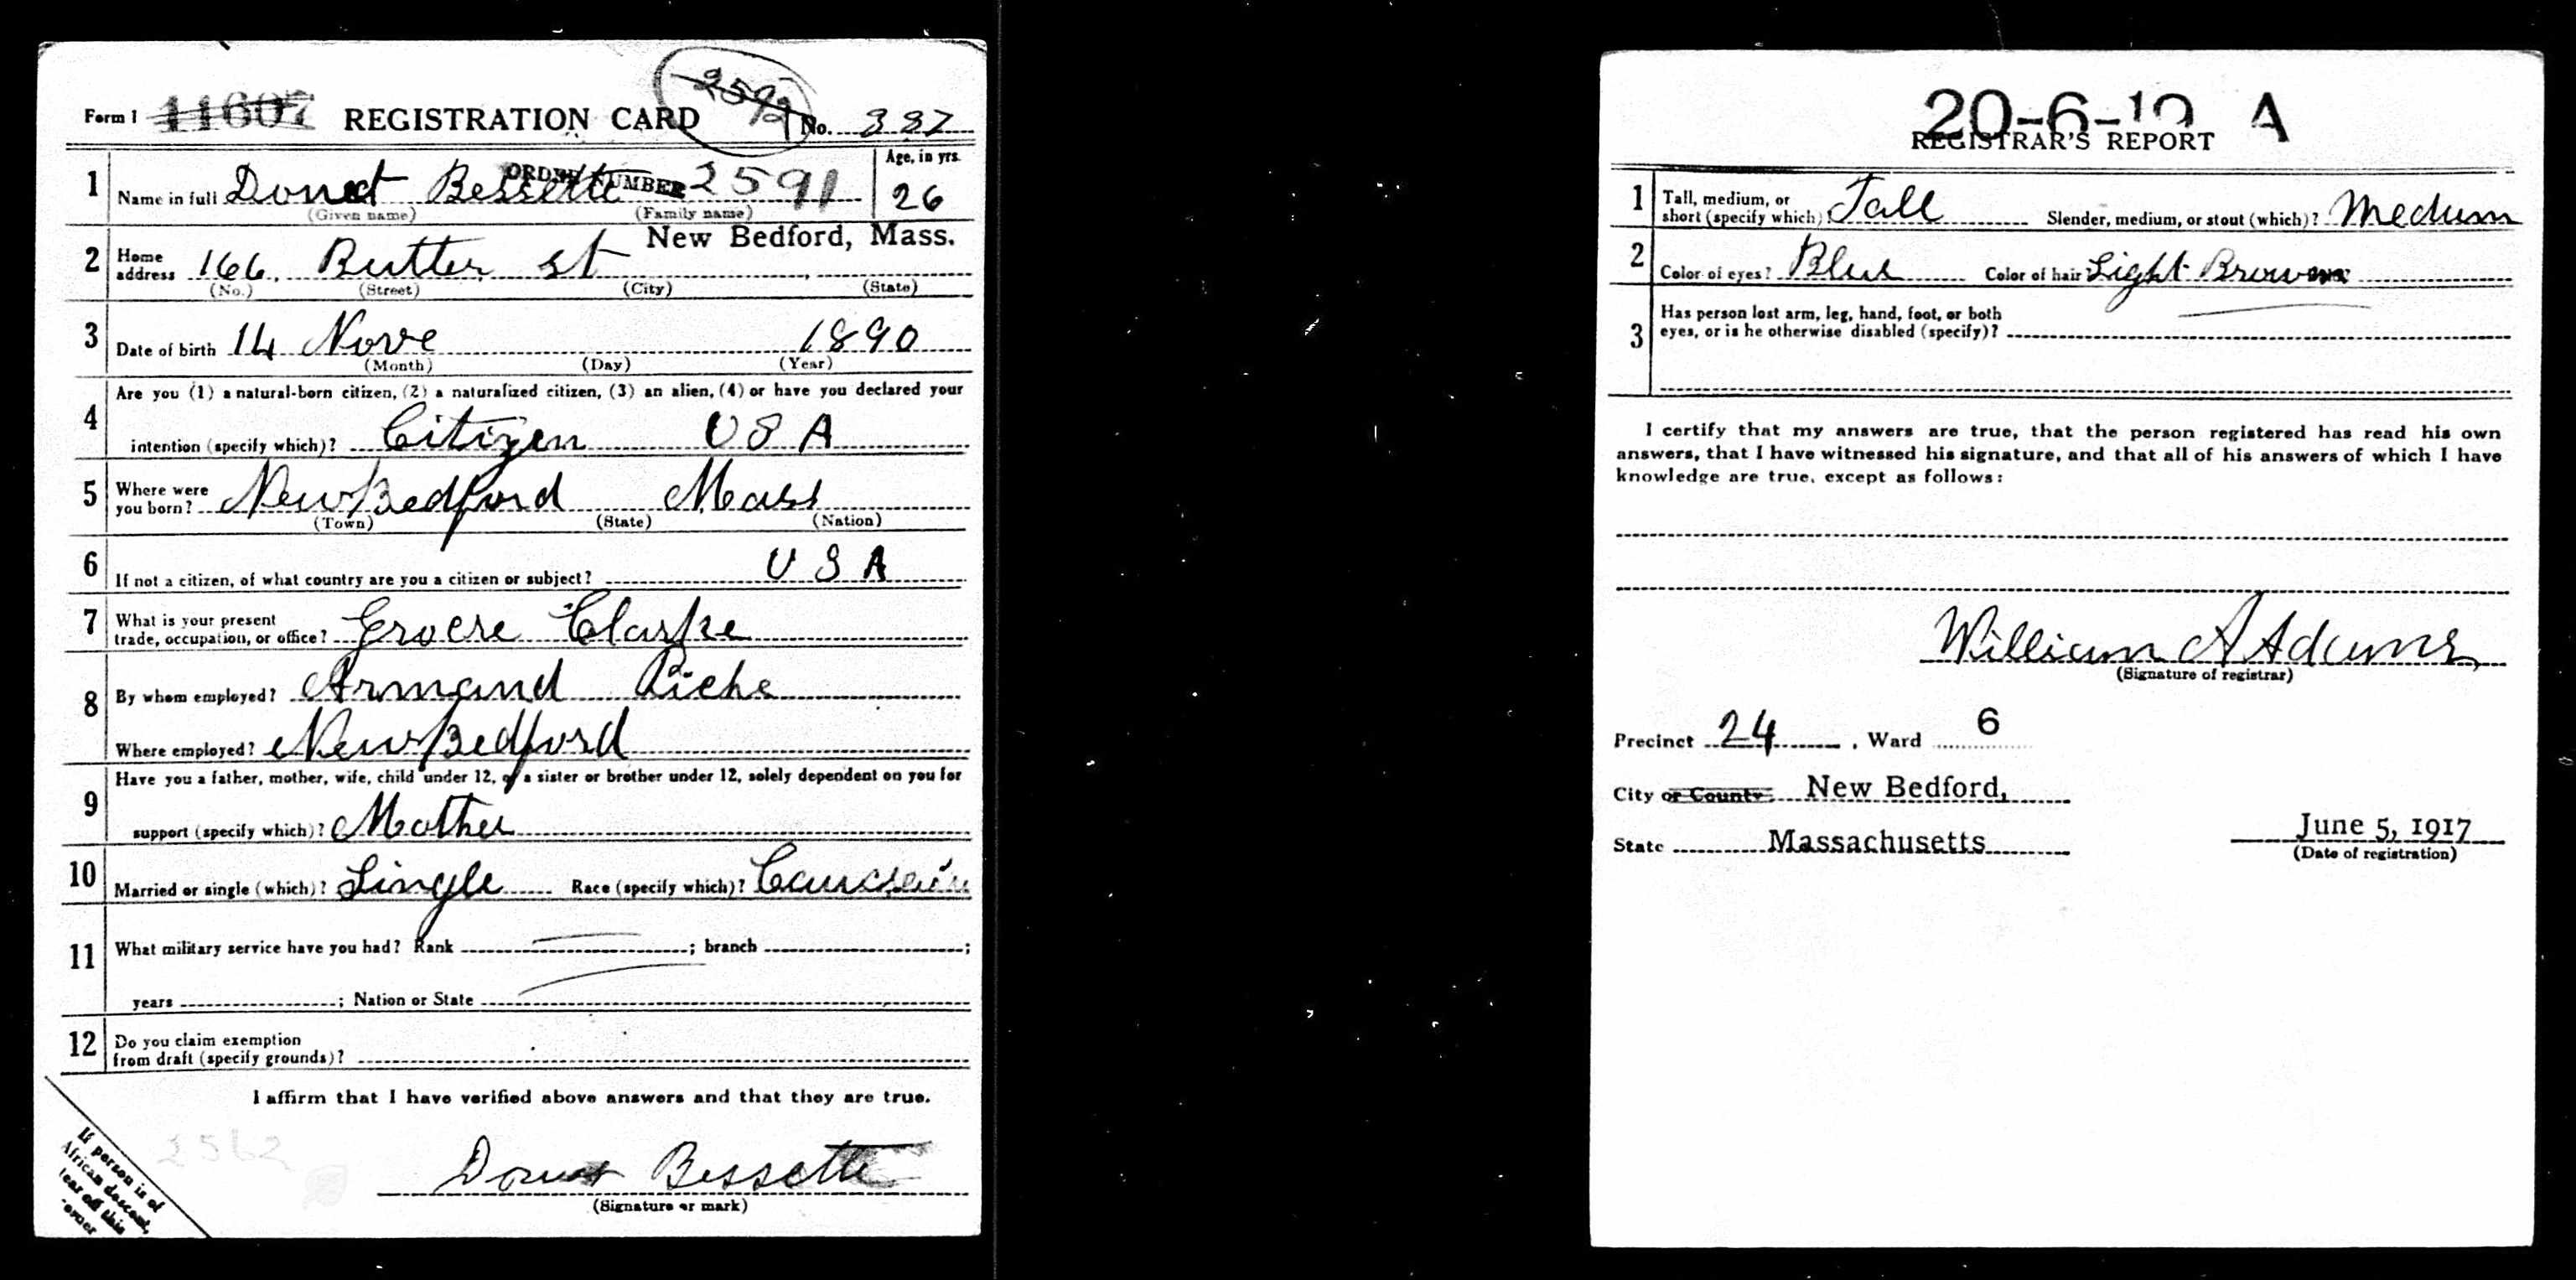 Form 1 11607 REGISTRATION CARD 2592 No. 387
1 Name in full Donat Bessette ORDER NUMBER 2591 Age, in yrs. 26
(Given name) (Family name)
New Bedford, Mass.
2 Home address 166, Butler st
(No.) (Street) (City) (State)
3 Date of birth 14 Nove 1890
(Month) (Day) (Year)
Are you (1) a natural-born citizen, (2) a naturalized citizen, (3) an alien, (4) or have you declared your
4 intention (specify which)? Citizen U S A
5 Where were you born? New Bedford Mass
(Town) (State) (Nation)
6 If not a citizen, of what country are you a citizen or subject? U S A
7 What is your present trade, occupation, or office? Grocre Clarke
8 By whom employed? Armand Riche
Where employed? New Bedford
9 Have you a father, mother, wife, child under 12, or a sister or brother under 12, solely dependent on you for
support (specify which)? Mother
10 Married or single (which)? Single Race (specify which)?
11 What military service have you had? Rank ; branch ;
years ; Nation or State
12 Do you claim exemption
from draft (specify grounds)?
I affirm that I have verified above answers and that they are true.
2562
Donat Bessette
(Signature or mark)
If person is of
African descent,
tear off this
corner
20-6-19 A
REGISTRAR'S REPORT
1 Tall, medium, or
short (specify which) Tall Slender, medium, or stout (which)? Medium
2 Color of eyes? Blue Color of hair? Light Brown
3 Has person lost arm, leg, hand, foot, or both
eyes, or is he otherwise disabled (specify)?
I certify that my answers are true, that the person registered has read his own
answers, that I have witnessed his signature, and that all of his answers of which I have
knowledge are true, except as follows:
William A Adams
(Signature of registrar)
Precinct 24 , Ward 6
City or County New Bedford,
State Massachusetts June 5, 1917
(Date of registration)